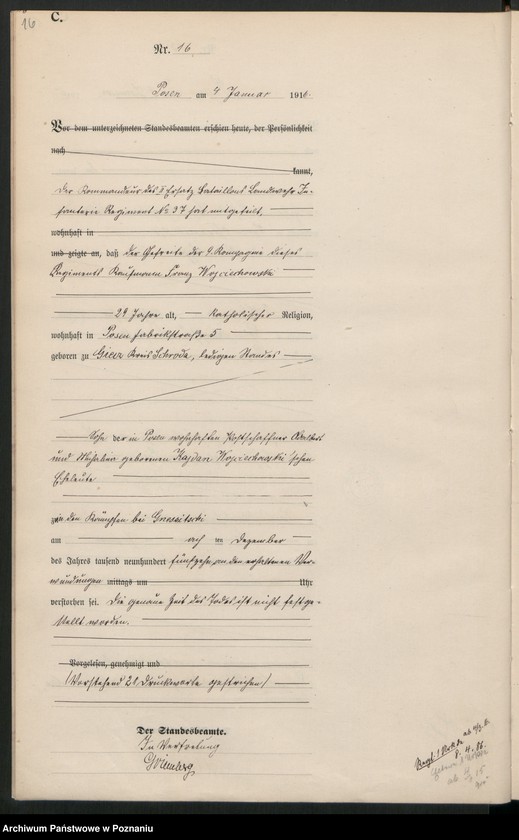 16
C.
Nr. 16
Posen am 4 Januar 1916.
Vor dem unterzeichneten Standesbeamten erschien heute, der Persönlichkeit
nach
kannt,
Der Kommandeur des II Ersatz Bataillons Landwehr In-
fanterie Regiment No 37 hat mitgeteilt,
wohnhaft in
und zeigte an, daß der Gefreite der 9. Kompagnie dieses
Regiments Kaufmann Franz Wojciechowski
29 Jahre alt, katholischer Religion,
wohnhaft in Posen Fabrikstraße 5
geboren zu Giecz Kreis Schroda, ledigen Standes
Sohn der in Posen wohnhaften Postschaffner Adalbert
und Michalina geborenen Kajdan Wojciechowski'schen
Eheleute
zu in den Kämpfen bei
am acht ten Dezember
des Jahres tausend neunhundert fünfzehn an den erhaltenen Ver-
wundungen mittags um Uhr
verstorben sei. Die genaue Zeit des Todes ist nicht festge-
stellt worden.
Vorgelesen, genehmigt und
(Vorstehend 21 Druckworte gestrichen)
Der Standesbeamte.
In Vertretung
8. 4. 86.
Archiwum Państwowe w Poznaniu